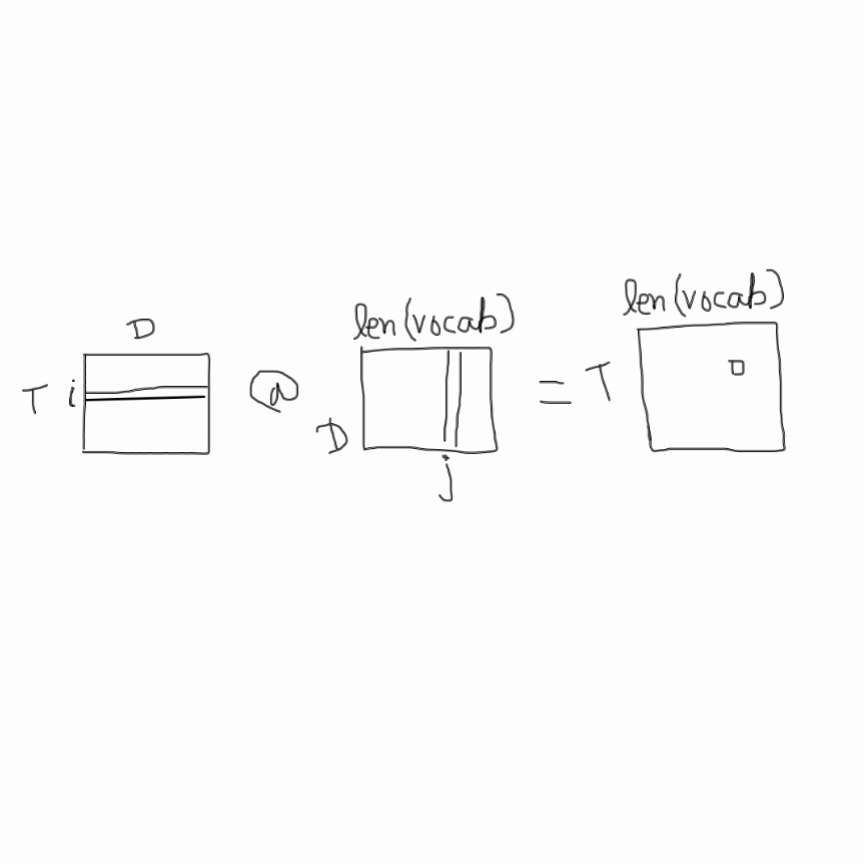 D
T i @ D
len(vocab)
j
= T
len(vocab)